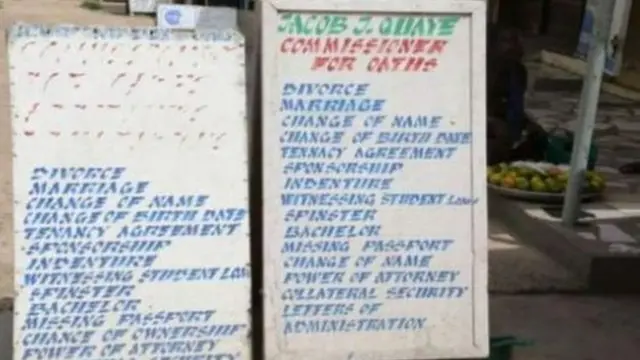 DIVORCE
MARRIAGE
CHANGE OF NAME
CHANGE OF BIRTH DATE
TENANCY AGREEMENT
SPONSORSHIP
INDENTURE
WITNESSING STUDENT LOAN
SPINSTER
BACHELOR
MISSING PASSPORT
CHANGE OF OWNERSHIP
POWER OF ATTORNEY
SECURITY
JACOB J. QUAYE
COMMISSIONER
FOR OATHS
DIVORCE
MARRIAGE
CHANGE OF NAME
CHANGE OF BIRTH DATE
TENNACY AGREEMENT
SPONSORSHIP
INDENTURE
WITNESSING STUDENT LOAN
SPINSTER
BACHELOR
MISSING PASSPORT
CHANGE OF NAME
POWER OF ATTORNEY
COLLATERAL SECURITY
LETTERS OF
ADMINISTRATION